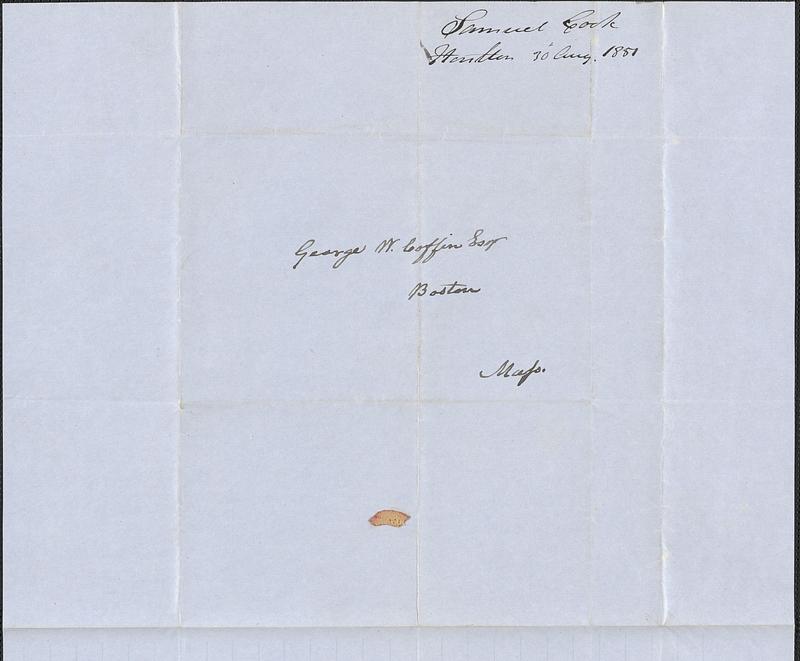 Samuel Cook
Houlton 30 Aug. 1851
George W. Coffin Esqr
Boston
Mass.